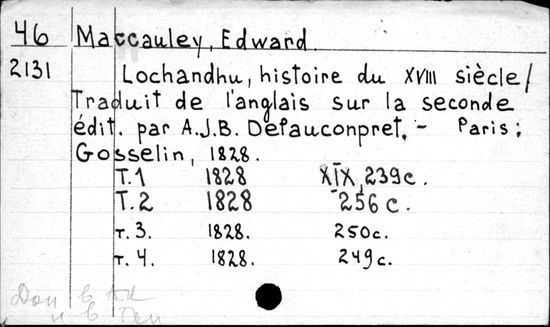 46 Maccauley, Edward.
2131 Lochandhu, histoire du XVIII siècle/
Traduit de l'anglais sur la seconde
édit. par A.J.B. Defauconpret. – Paris:
Gosselin, 1828.
T.1 1828 XIX, 239c.
T.2 1828 256c.
T.3. 1828. 250c.
T.4. 1828. 249c.